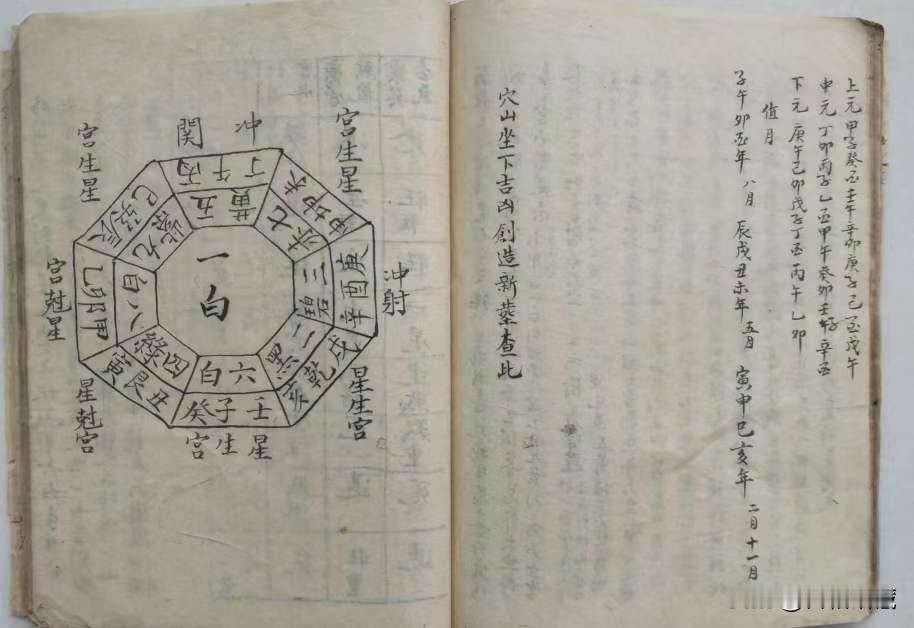 上元甲子癸酉壬午辛卯庚子己酉戊午
中元丁卯丙子乙酉甲午癸卯壬子辛酉
下元庚午己卯戊子丁酉丙午乙卯
值月
子午卯酉年 八月 辰戌丑未年 五月 寅申巳亥年 二月十一月
穴山坐下吉凶創造新塋查此
冲関
宮生星
冲射
星生宮
星生宮
星尅宮
宮尅星
宮生星
丁午丙
五黄
坤申
七赤
庚酉辛
三碧
戌乾亥
二黑
壬子癸
六白
丑艮寅
四綠
甲卯乙
八白
辰巽巳
九紫
一白